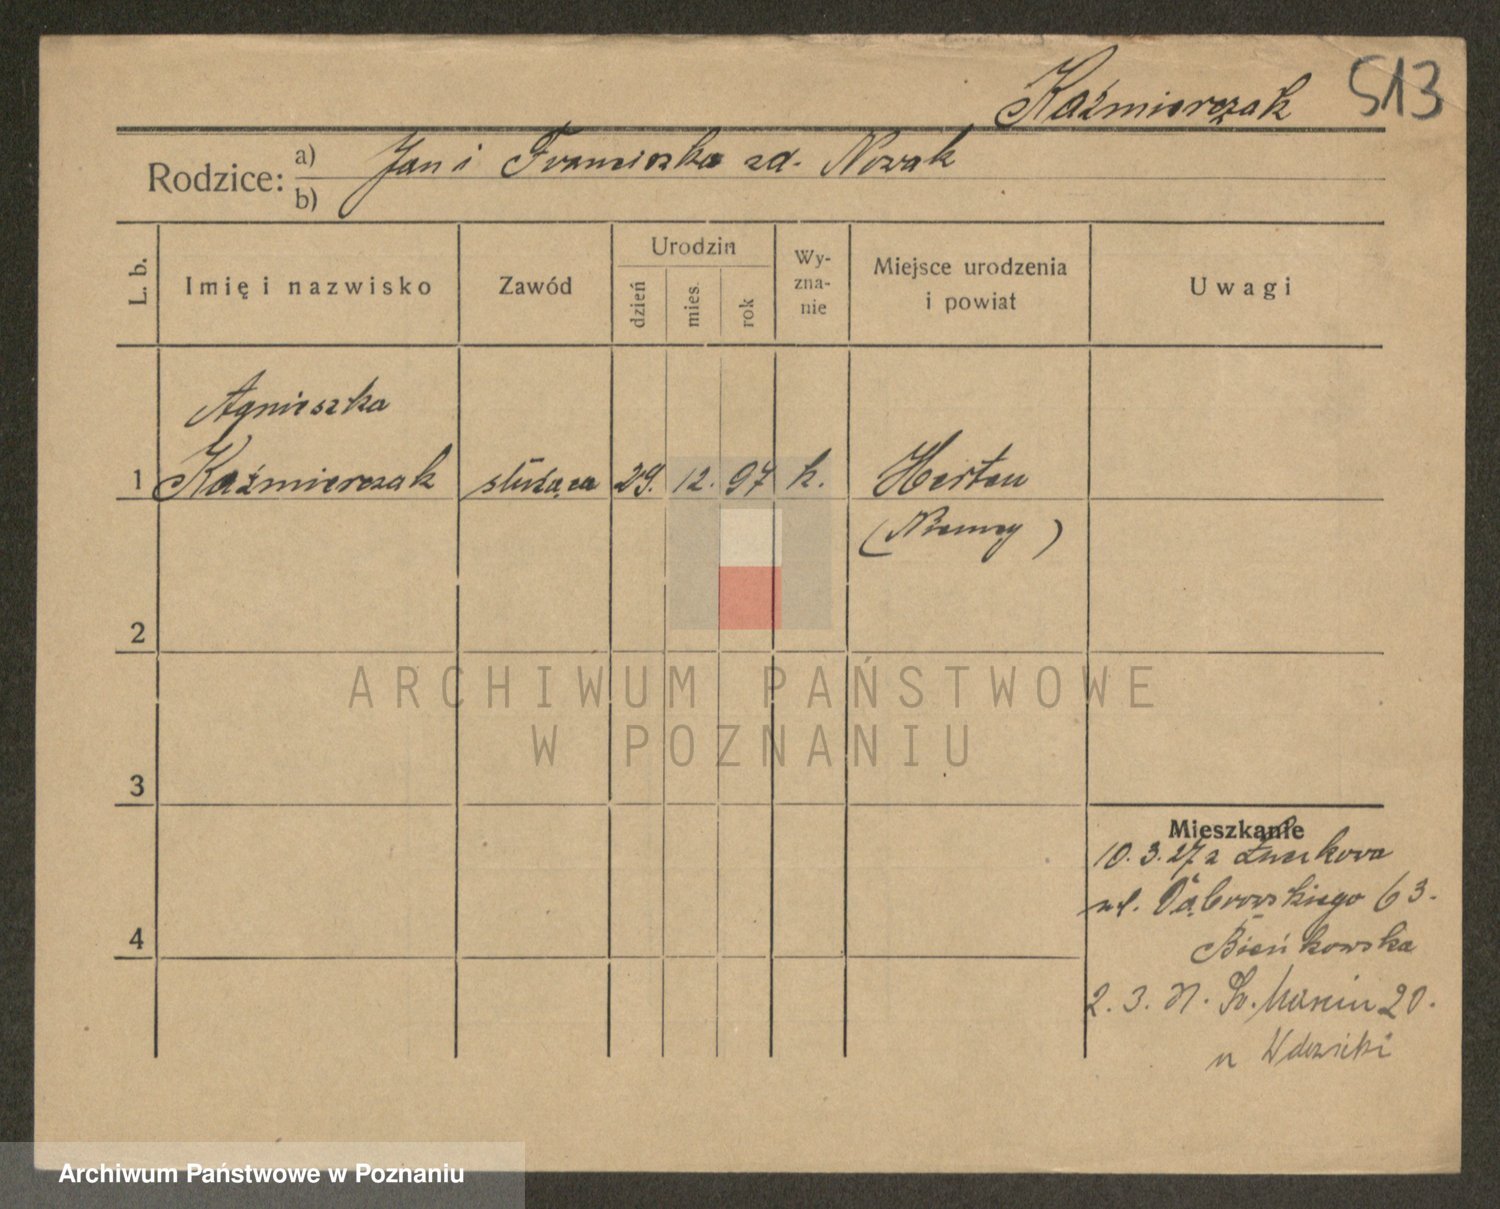 Kaźmierczak 513
Rodzice: a) Jan i Franciszka zd. Nowak
b)
L. b. Imię i nazwisko Zawód Urodzin dzień mies. rok Wy-zna-nie Miejsce urodzenia i powiat Uwagi
Agnieszka
1 Kaźmierczak służąca 29. 12. 97 k. Herten
(Niemcy)
2
ARCHIWUM PAŃSTWOWE
W POZNANIU
3
Mieszkanie
10. 3. 27 z
ul. Dąbrowskiego 63.
4 Bieńkowska
2. 3. Św. Marcin 20.
u
Archiwum Państwowe w Poznaniu